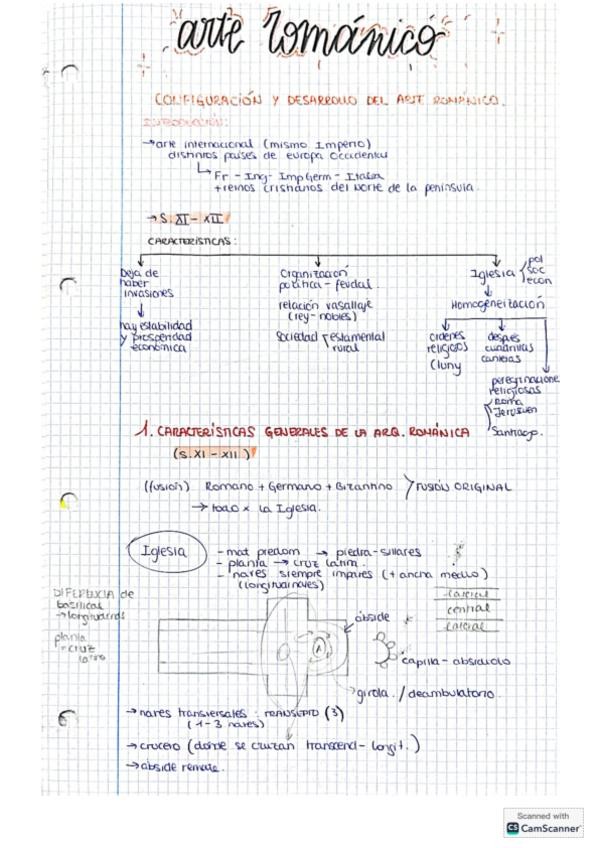 arte románico
CONFIGURACIÓN Y DESARROLLO DEL ARTE ROMÁNICO.
INTRODUCCIÓN:
→ arte internacional (mismo Imperio)
distintos países de europa Occidental
↳ Fr - Ing - Imp Germ - Italia
+ reinos cristianos del norte de la península.
→ S. XI - XII
CARACTERÍSTICAS:
Deja de
haber
invasiones
↓
hay estabilidad
y prosperidad
económica
Organización
política - feudal.
relación vasallaje
(rey - nobles)
Sociedad estamental
rural
Iglesia { pol
soc
econ
↓
Homogeneización
ordenes
religiosos
Cluny
despues
cuadrillas
canteras
peregrinacione
religiosas
Roma
Jerusalen
Santiago.
1. CARACTERÍSTICAS GENERALES DE LA ARQ. ROMÁNICA
(S. XI - XII)
(fusión) Romano + Germano + Bizantino > FUSIÓN ORIGINAL
→ todo x la Iglesia.
Iglesia
- mat predom → piedra - sillares
- planta → cruz latina.
- naves siempre impares (+ ancha medio)
(longitudinales)
lateral
central
lateral
DIFERENCIA de
basílicas
→ longitudinales
planta
= cruz
latina
ábside
capilla - absidiolo
girola. / deambulatorio.
→ naves transversales: TRANSEPTO (3)
(1 - 3 naves)
→ crucero (donde se cruzan transcend - longit.)
→ abside remate.
Scanned with
CS CamScanner